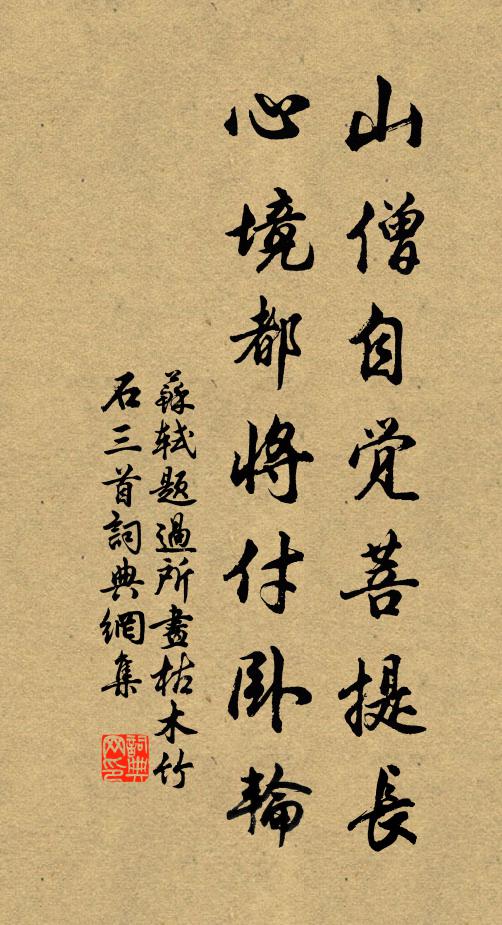 山僧自觉菩提長
心境都將付卧輪
蘇軾題過所畫枯木竹
石三首詞典網集
詞典网印